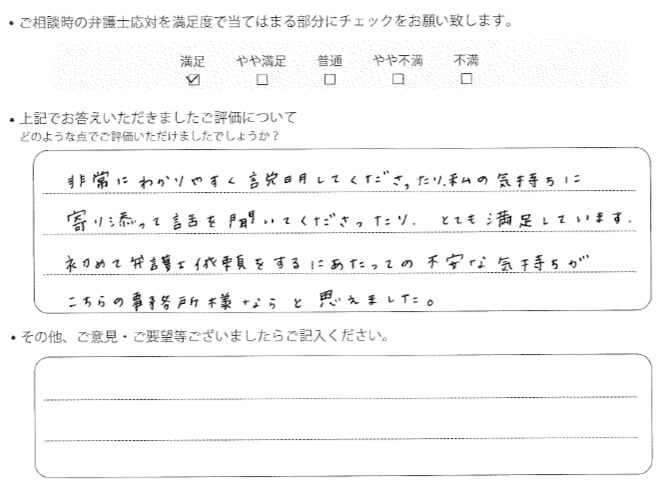 • ご相談時の弁護士応対を満足度で当てはまる部分にチェックをお願い致します。
満足 やや満足 普通 やや不満 不満
☑ ☐ ☐ ☐ ☐
• 上記でお答えいただきましたご評価について
どのような点でご評価いただけましたでしょうか？
非常にわかりやすく説明してくださったり、私の気持ちに
寄り添って話を聞いてくださったり、とても満足しています。
初めて弁護士依頼をするにあたっての不安な気持ちが
こちらの事務所様ならと思えました。
• その他、ご意見・ご要望等ございましたらご記入ください。